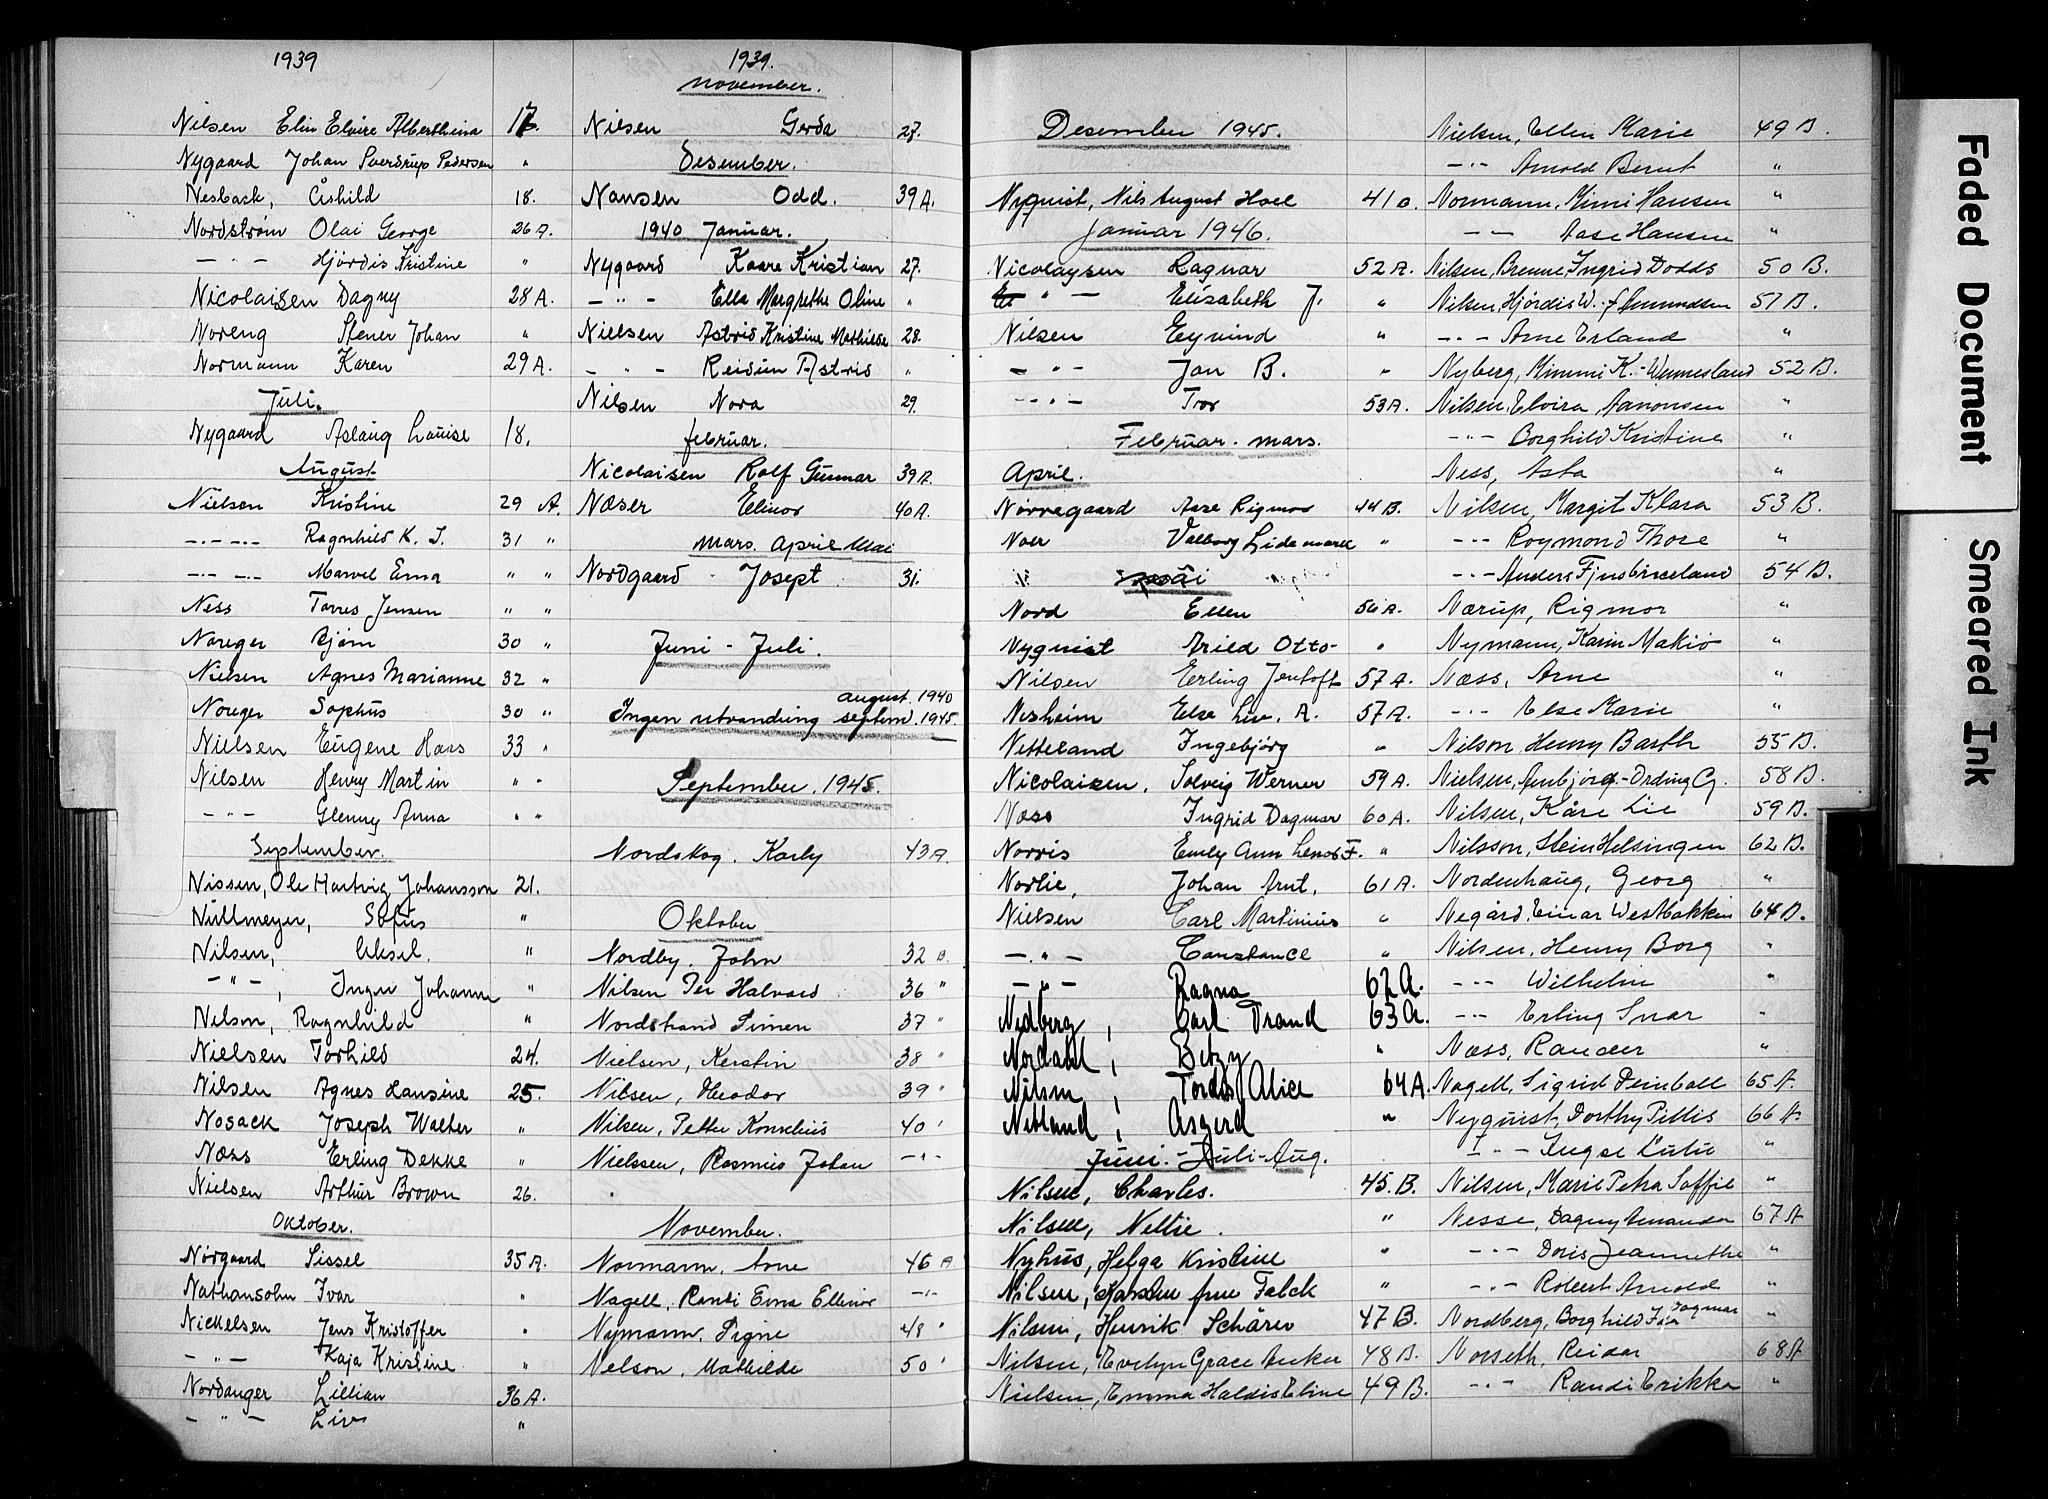 1939
Nilsen Elin Elvire Alberthina 17.
Nygaard Johan Sverdrup Pedersen "
Nesback, Åshild 18.
Nordstrøm Olai George 26 A.
— " — Hjørdis Kristine "
Nicolaisen Dagny 28 A.
Noreng Stener Johan "
Normann Karen 29 A.
Juli.
Nygaard Aslaug Louise 18.
August
Nielsen Kristine 29 A.
—"—"— Ragnhild K. J. 31 "
—"—"— Marvel Erna " "
Ness Torres Jensen " "
Noreger Bjørn 30 "
Nielsen Agnes Marianne 32 "
Noreger Sophus 30 "
Nielsen Eugene Hars 33 "
Nilsen Henry Martin " "
— " — Glenny Anna " "
September.
Nissen, Ole Hartvig Johansson 21.
Nüllmeyer, Sofus "
Nilsen, Aksel "
— " —, Inger Johanne "
Nilson, Ragnhild "
Nielsen Torhild 24.
Nilsen Agnes Hansine 25.
Nosack Joseph Walter "
Næss Erling Dekke "
Nielsen Arthur Brown 26.
Oktober.
Nørgaard Sissel 35 A.
Nathansohn Ivar "
Nickelsen Jens Kristoffer "
— " — Kaja Kristine "
Nordanger Lillian 36 A.
— " — Liv "
1939.
November.
Nielsen Gerda 27.
Desember.
Nansen Odd. 39 A.
1940 Januar.
Nygaard Kaare Kristian 27.
— " — Ella Margrethe Oline "
Nielsen Astrid Kristine Mathilde 28.
— " — Reidun Astrid "
Nilsen Nora 29.
februar.
Nicolaisen Rolf Gunnar 39 A.
Næser Elinor 40 A.
Mars. April Mai
Nordgaard Josept 31.
Juni - Juli.
august 1940
Ingen utvandring septem. 1945.
September. 1945.
Nordskog. Karly 43 A
Oktober
Nordby. John 32 B
Nilsen Per Halvard 36 "
Nordstrand Simen 37 "
Nielsen, Kerstin 38 "
Nilsen, Theodor 39 "
Nilsen, Petter Kornelius 40 "
Nielssen, Rasmus Johan — " —
November.
Normann. Arne 46 A
Nagell, Randi Erna Ellinor — " —
Nymann. Signe 48 "
Nelson, Mathilde 50 "
Desember 1945.
Nyquist, Nils August Hoel 41 a.
Januar 1946.
Nicolaysen Ragnar 52 A.
" — Elisabeth J. "
Nilsen Eyvind "
— " — Jan B. "
— " — Tror 53 A.
Februar. mars.
April.
Nørregaard Aase Rigmor 44 B.
Noer Valborg Lidemark "
Mai
Nord Ellen 56 A.
Nyquist Arild Otto "
Nilsen Erling Jentoft 57 A.
Nesheim Else Liv. A. 57 A.
Netteland Ingebjørg "
Nicolaisen, Solveig Werner 59 A.
Næss Ingrid Dagmar 60 A.
Norris Emily Ann F. "
Norlie, Johan Arnt, 61 A.
Nielsen Carl Martinius "
— " — Constance "
— " — Ragna 62 A.
Nedberg, Carl Trand 63 A.
Nordahl, Betzy "
Nilsen, Tordis Alice 64 A.
Netland, Asgerd "
Juni. - Juli - Aug.
Nilsen, Charles. 45. B.
Nilsen, Nellie. "
Nyhus, Helga Kristine "
Nilsen, Karsten fru Falck "
Nilsen, Henrik Schärer 47 B.
Nilsen, Evelyn Grace Anker 48 B.
Nielsen, Emma Haldis Eline 49 B.
Nielsen, Ellen Marie 49 B.
— " — Arnold Bernt "
Normann, Mimi Hansen "
— " — Aase Hansen "
Nilsen, Brenne, Ingrid Dodds 50 B.
Nilsen, Hjördis W. - f. Amundsen 51 B.
— " — Arne Erland "
Nyberg, Kimmi K. - Wennesland 52 B.
Nilsen, Elvira, Aanonsen "
— " — Borghild Kristine "
Ness, Asta "
Nilsen, Margit Klara 53 B.
— " — Roymond Thore "
— " — Anders 54 B.
Nærup, Rigmor "
Nymann, Karin Makiö "
Næss, Arne "
— " — Else Marie "
Nilson, Henry Barth 55 B.
Nielsen, Annbjørg - Ording G. 58 B.
Nilsen, Kåre Lie 59 B.
Nilsson, Stein Helsingen 62 B.
Nordenhaug, Georg "
Negård, Einar Westbakken 64 B.
Nilsen, Henry Borg "
— " — Wilhelm "
— " — Erling Ivar "
Næss, Rander "
Nagell, Sigrid Deinboll 65 A
Nyquist, Dorthy Pettis 66 A.
— " — Inger Lulu "
Nilsen, Marie Petra Soffie "
Nesse, Dagny Amanda 67 A
— " — Doris Jeannethe "
— " — Robert Arnold "
Nordberg, Borghild Dagmar "
Norseth, Reidar 68 A
— " — Randi Erikka "
Faded Document
Smeared Ink